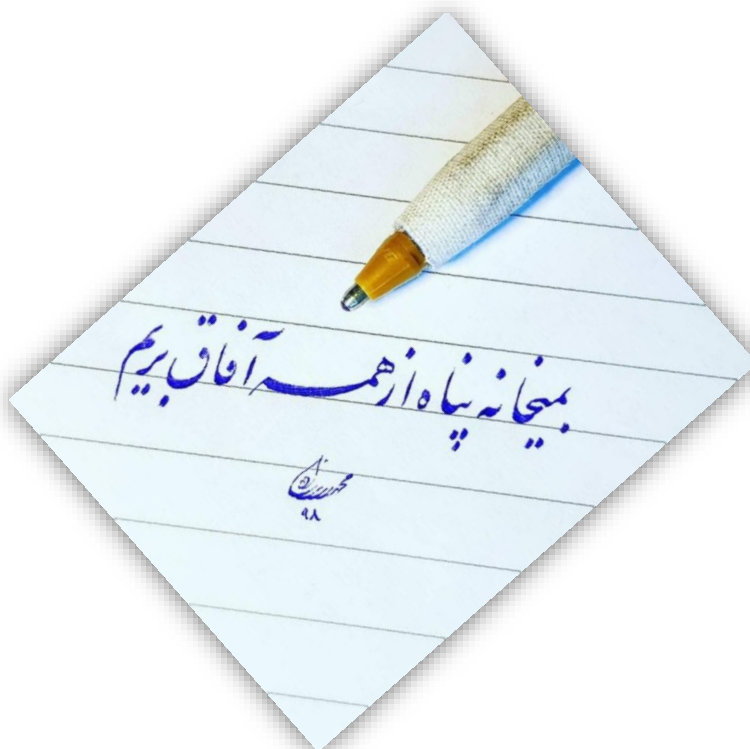 بمیخانه پناه از همه آفاق بریم
۹۸